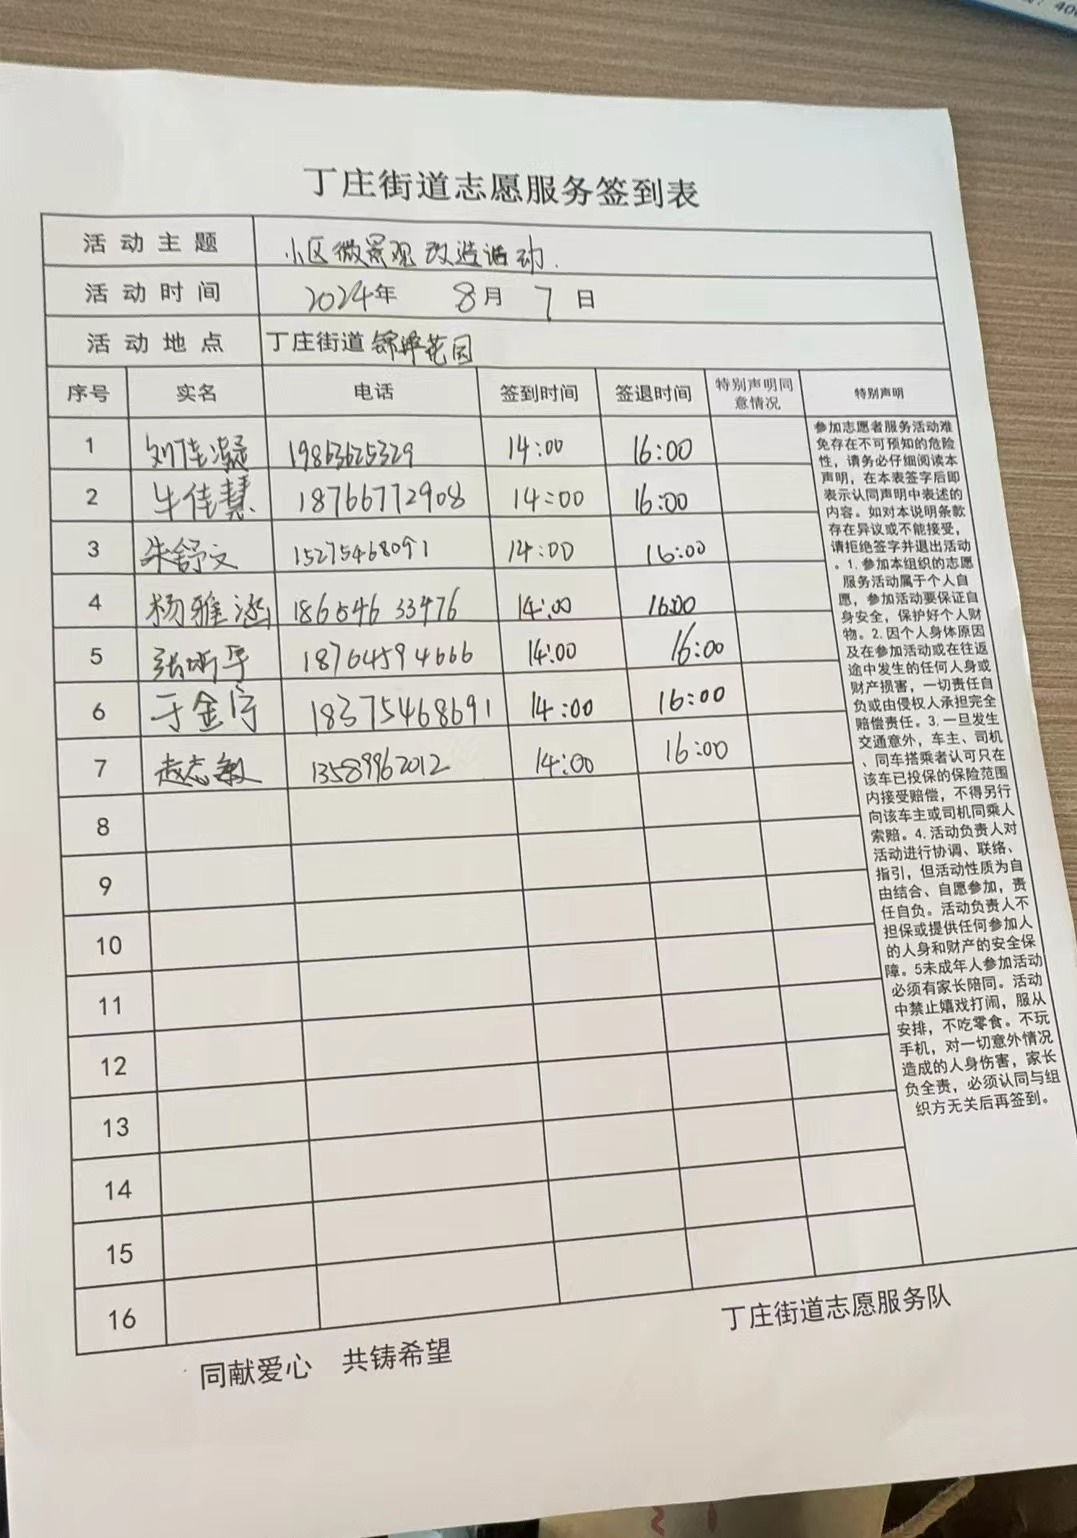 丁庄街道志愿服务签到表
活动主题 小区微景观改造活动.
活动时间 2024年 8月 7日
活动地点 丁庄街道锦绣花园
序号 实名 电话 签到时间 签退时间 特别声明同意情况 特别声明
1 刘佳凝 19863625329 14:00 16:00
2 牛佳慧 18766772908 14:00 16:00
3 朱舒文 15275468091 14:00 16:00
4 杨雅涵 18654633476 14:00 16:00
5 张昕平 18764594666 14:00 16:00
6 于金 18375468691 14:00 16:00
7 赵志敏 13589962012 14:00 16:00
8
9
10
11
12
13
14
15
16
参加志愿者服务活动难
免存在不可预知的危险
性，请务必仔细阅读本
声明，在本表签字后即
表示认同声明中表述的
内容。如对本说明条款
存在异议或不能接受，
请拒绝签字并退出活动
。1.参加本组织的志愿
服务活动属于个人自
愿，参加活动要保证自
身安全，保护好个人财
物。2.因个人身体原因
及在参加活动或在往返
途中发生的任何人身或
财产损害，一切责任自
负或由侵权人承担完全
赔偿责任。3.一旦发生
交通意外，车主、司机
、同车搭乘者认可只在
该车已投保的保险范围
内接受赔偿，不得另行
向该车主或司机同乘人
索赔。4.活动负责人对
活动进行协调、联络、
指引，但活动性质为自
由结合、自愿参加，责
任自负。活动负责人不
担保或提供任何参加人
的人身和财产的安全保
障。5未成年人参加活动
必须有家长陪同。活动
中禁止嬉戏打闹，服从
安排，不吃零食。不玩
手机，对一切意外情况
造成的人身伤害，家长
负全责，必须认同与组
织方无关后再签到。
丁庄街道志愿服务队
同献爱心 共铸希望